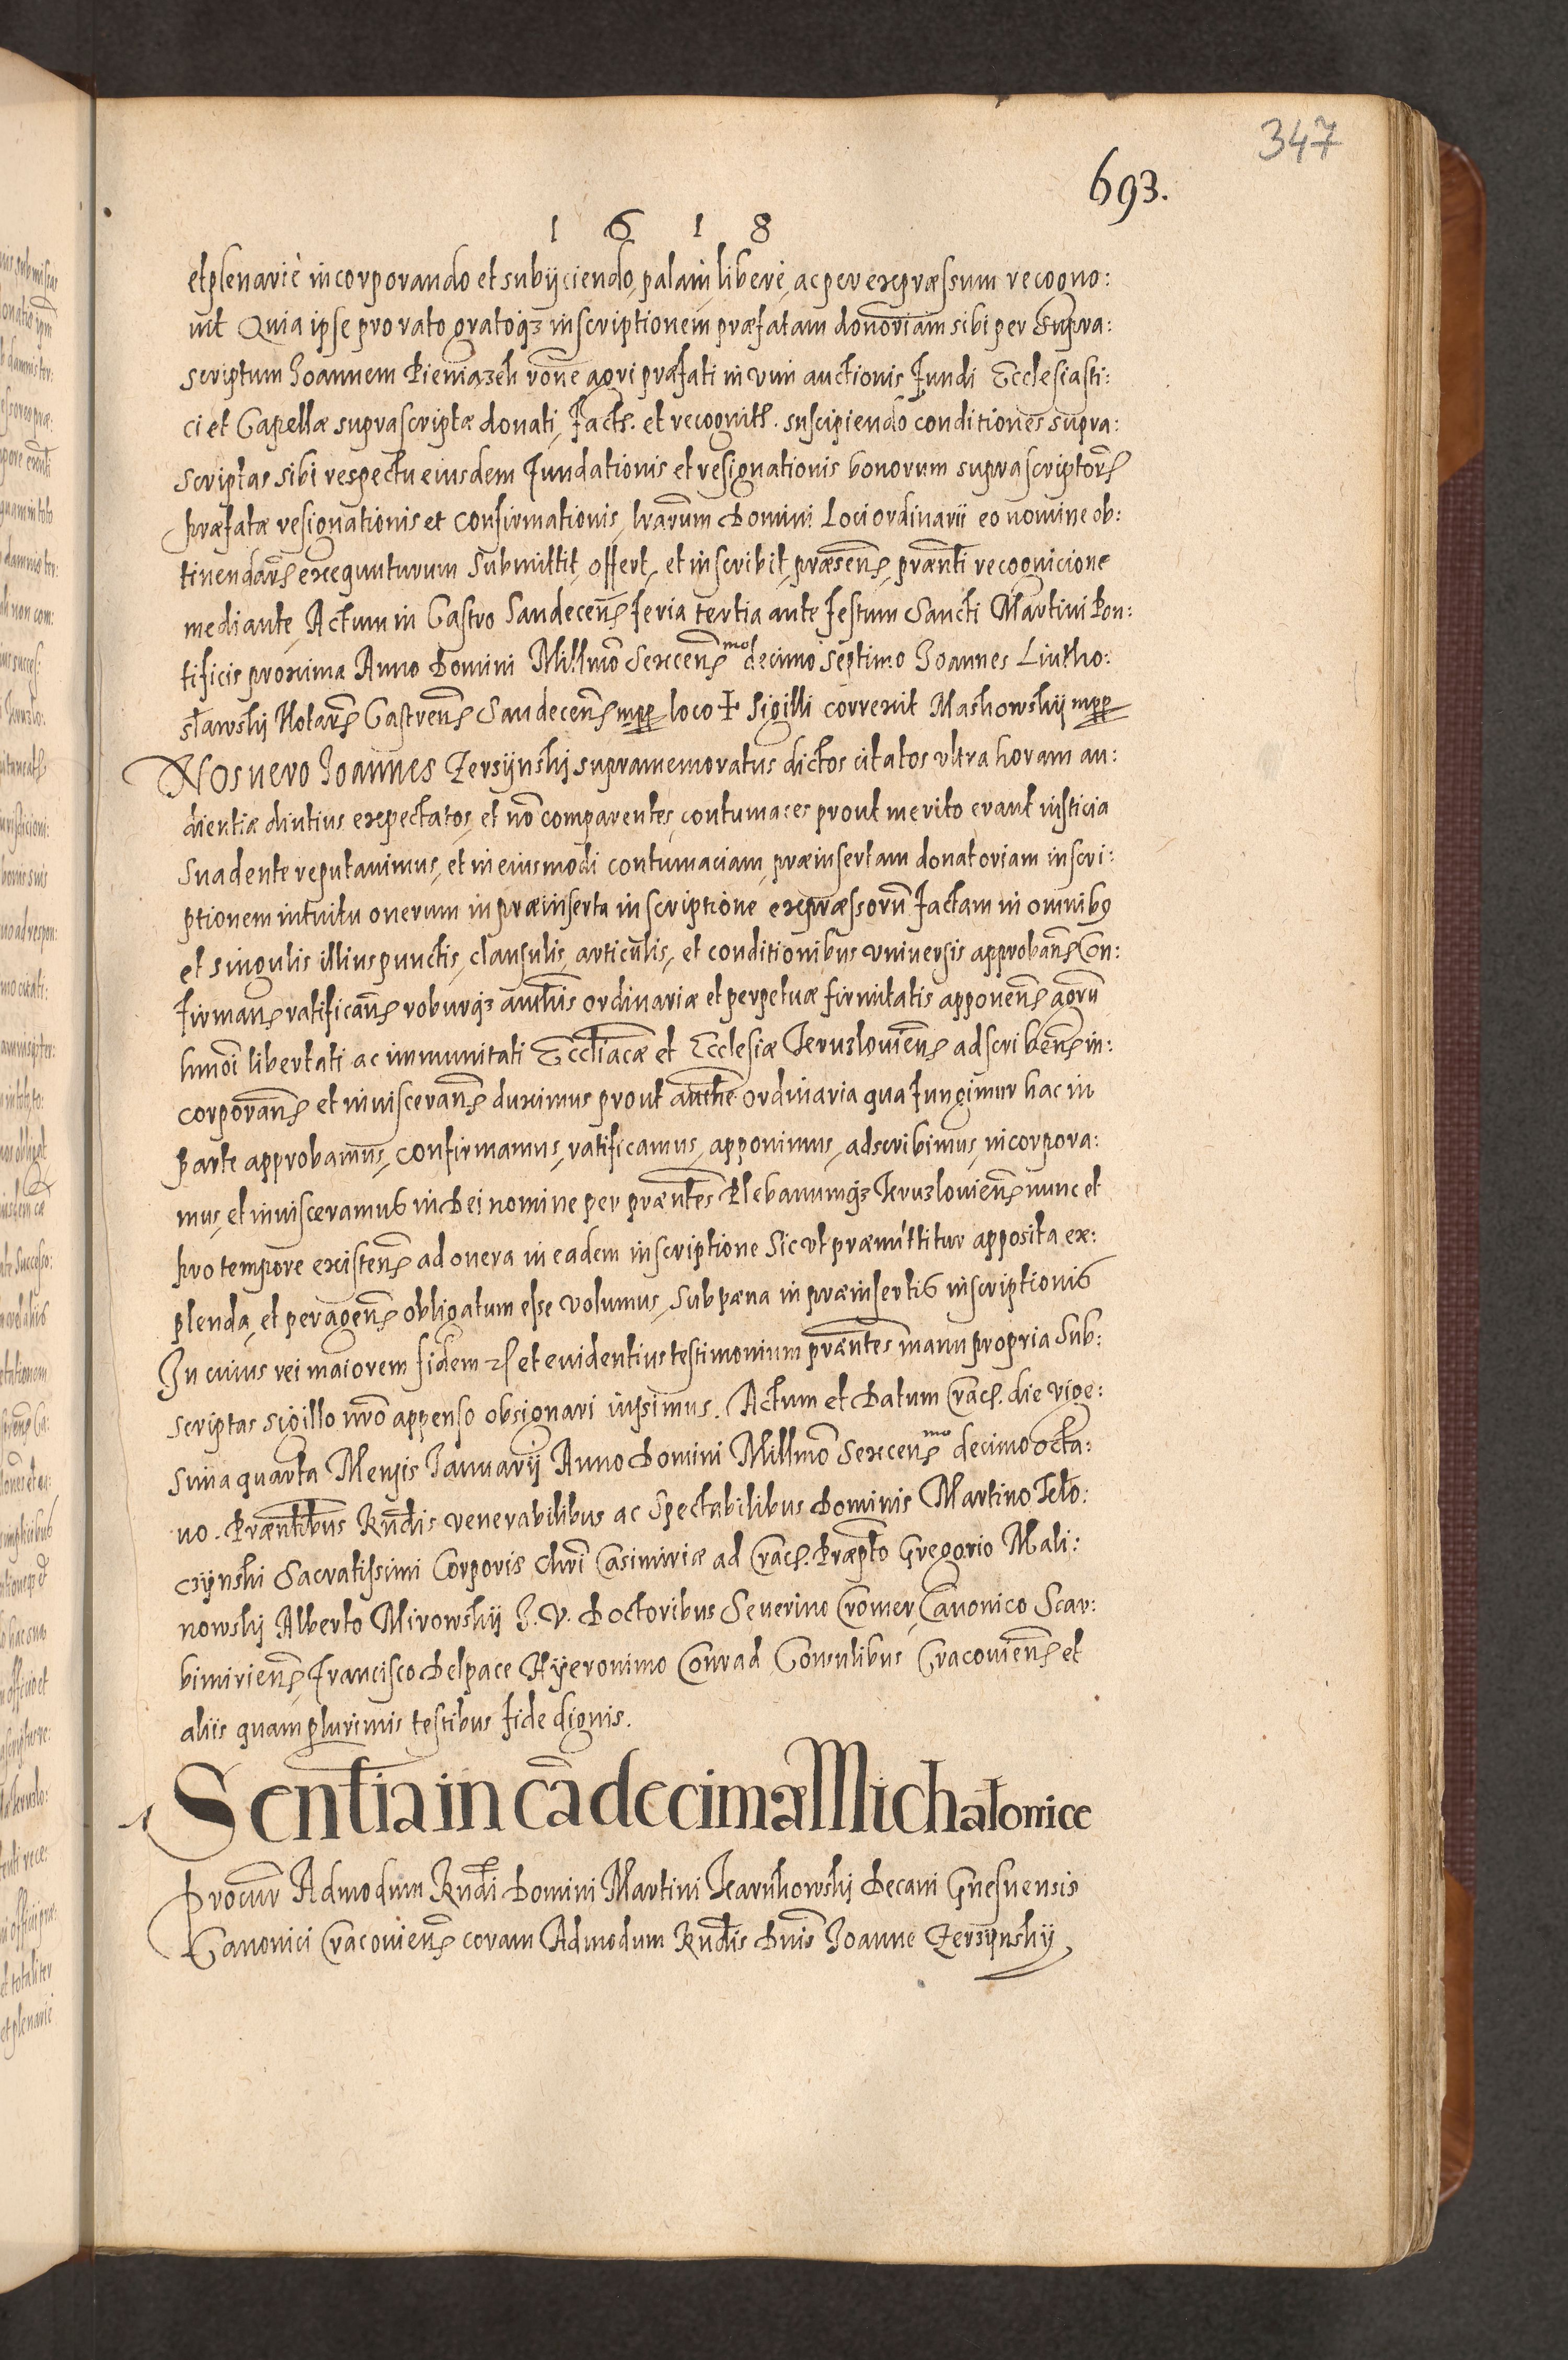 347
693.
1 6 1 8
et plenariè incorporando et subijciendo, palam liberè, ac per expræssum recogno:
uit Quia ipse pro rato gratoq₃ inscriptionem præfatam donõriam sibi per supra:
scriptum Joannem Pieniązek rõne agri præfati in vim auctionis fundi Ecclesiasti:
ci et Capellæ suprascriptæ donati, fact. et recognit. suscipiendo conditiones supra:
scriptas sibi respectu eiusdem fundationis et resignationis bonorum suprascriptor̃
præfatæ resignationis et confirmationis, lrarũm Domini Loci ordinarii eo nomine ob:
tinendar̃ exequuturum submittit, offert, et inscribit, præsens̃, præñti recognicione
mediante, Actum in Castro Sandecens̃ feria tertia ante festum Sancti Martini Pon:
tificis proxima Anno Domini Millmõ Sexcens̃mo decimo septimo Joannes Liutho:
sławskj Notar̃ Castrens̃ Sandecens̃ mpp loco ✠ Sigilli correxit Maskowskij mpp
Nos uero Joannes Zersijnskj supramemoratus dictos citatos vltra horam au:
dientiæ diutius expectatos, et nõ comparentes, contumaces prout merito erant iusticia
suadente reputauimus, et in eiusmodi contumaciam, præinsertam donatoriam inscri:
ptionem intuitu onerum in præinserta inscriptione expræssorũ factam in omnibꝯ
et singulis illius punctis, clausulis, articulis, et conditionibus vniuersis approbañ Con:
firmañ ratificañ roburq₃ authtis ordinariæ et perpetuæ firmitatis apponeñ agrũ
hmõi libertati ac immunitati Eccliacæ et Ecclesiæ Jeruzlouiens̃ adscribeñ in:
corporañ et inuiscerañ duximus prout authte ordinaria qua fungimur hac in
parte approbamus, confirmamus, ratificamus, apponimus, adscribimus, incorpora:
mus, et inuisceramus in Dei nomine per præñtes Plebanumq₃ Jeruzlouiens̃ nunc et
pro tempore existeñ ad onera in eadem inscriptione sic vt præmittitur apposita ex:
plenda, et perageñ obligatum esse volumus, sub pæna in præinsertis inscriptionis
In cuius rei maiorem fidem et euidentius testimonium præñtes manu propria sub:
scriptas sigillo nrõ appenso obsignari iussimus. Actum et Datum Crac̃. die vige:
sima quarta Mensis Januarij Anno Domini Millmõ Sexcens̃mo decimo octa:
uo. Præñtibus Rndis venerabilibus ac Spectabilibus Dominis Martino Telo:
czijnski Sacratissimi Corporis Chri Casimiriæ ad Crac̃. Præpto Gregorio Mali:
nowskj Alberto Mirowskij J. V. Doctoribus Seuerino Cromer, Canonico Scar:
bimiriens̃, Francisco Delpace Hyeronimo Conrad Consulibus Cracouiens̃ et
aliis quamplurimis testibus fide dignis.
Sentia in cã decimæ Michałonice
Procur̃ Admodum Rndi Domini Martini Jearnkowskj Decani Gnesnensis
Canonici Cracouiens̃ coram Admodum Rndis Dnis Joanne Zerzijnskij